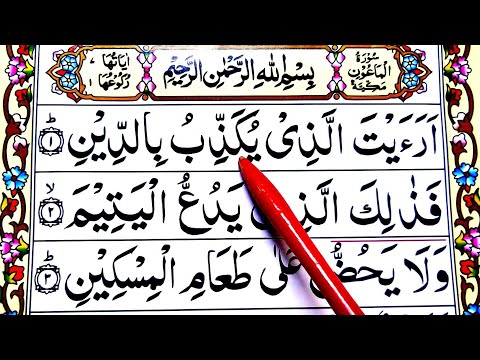 سُوْرَةُ الْمَاعُوْنِ مَكِّيَّةٌ
بِسْمِ اللّٰهِ الرَّحْمٰنِ الرَّحِيْمِ
اٰيَاتُهَا
رُكُوْعُهَا
اَرَءَيْتَ الَّذِىْ يُكَذِّبُ بِالدِّيْنِ ؕ ۝۱
فَذٰلِكَ الَّذِىْ يَدُعُّ الْيَتِيْمَ ۙ ۝۲
وَلَا يَحُضُّ عَلٰى طَعَامِ الْمِسْكِيْنِ ؕ ۝۳